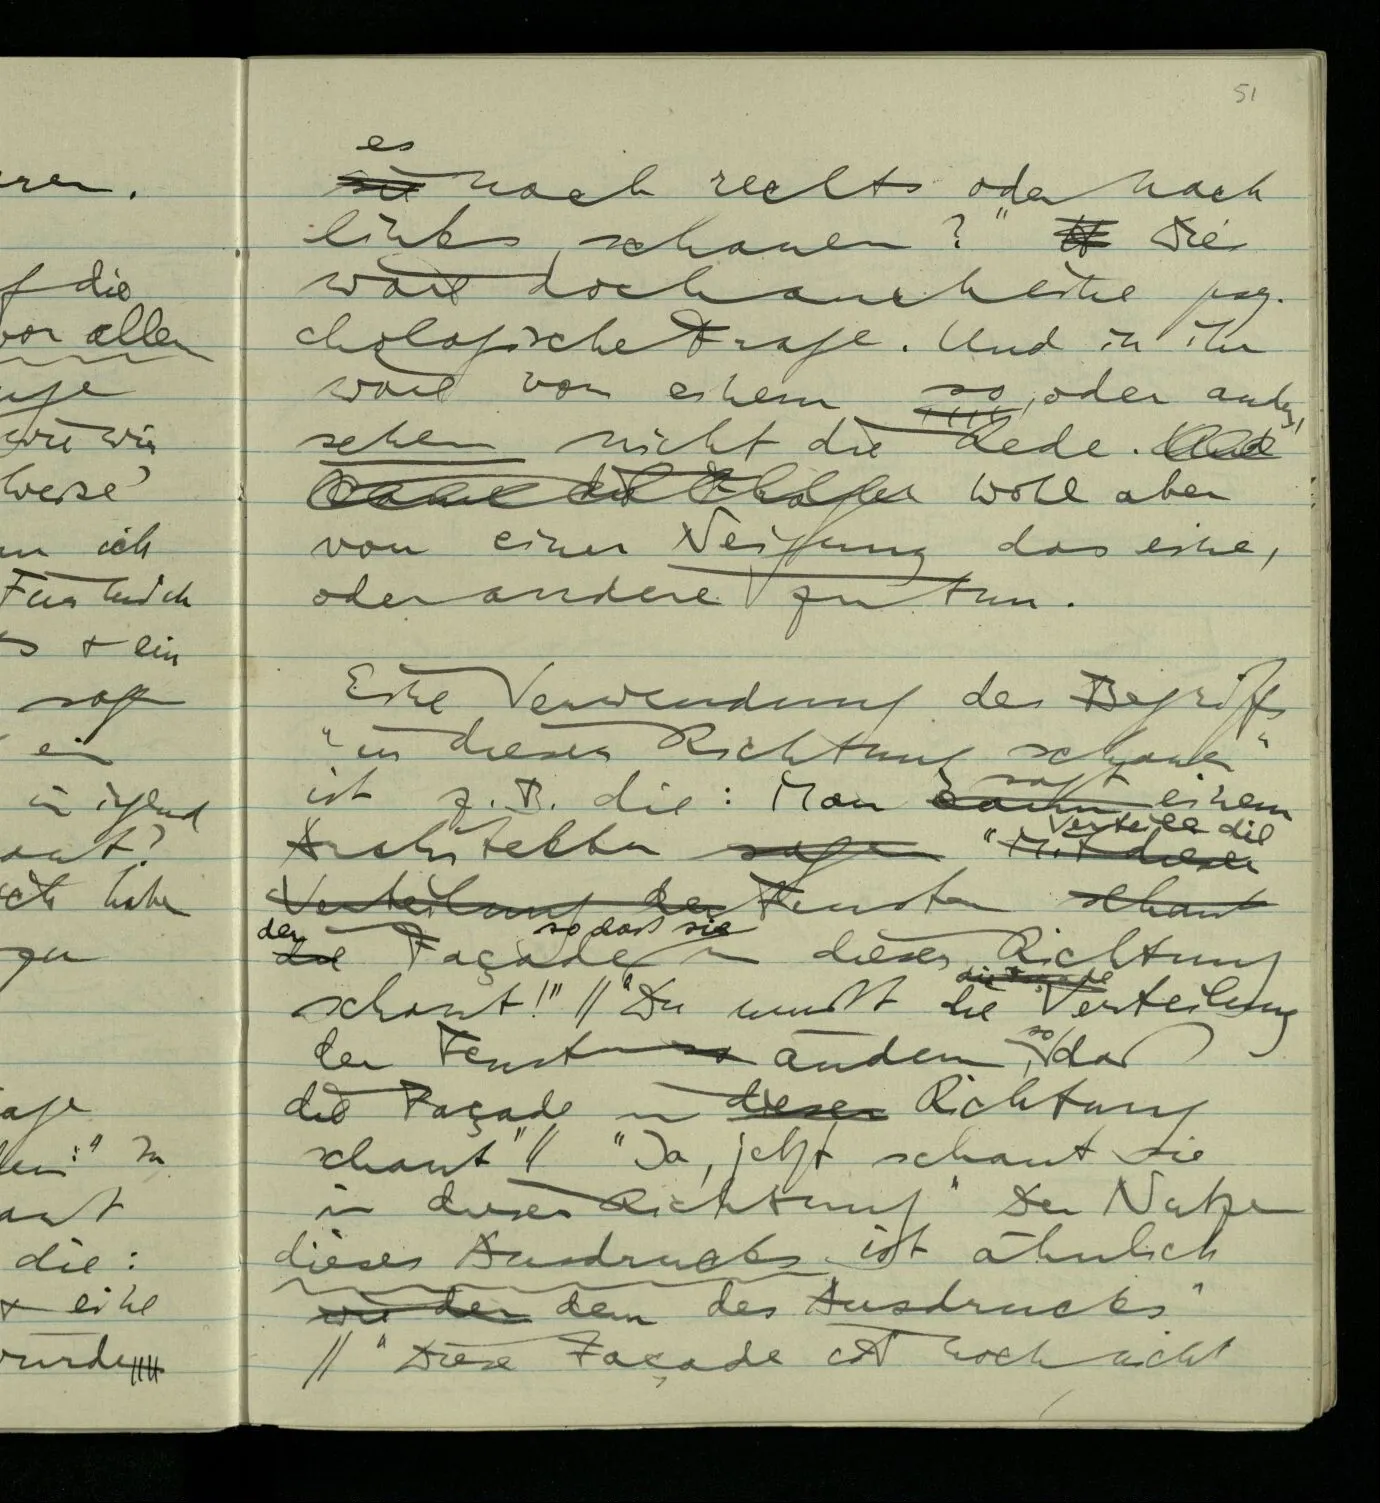 51
es
sie nach rechts oder nach
links schauen?" Die
wäre doch auch eine psy-
chologische Frage. Und in ihr
wäre von einem so, oder anders,
sehen nicht die Rede. Und
wohl aber
von einer Neigung das eine,
oder andere zu tun.
Eine Verwendung des Begriffs
"in dieser Richtung schauen"
sagt
ist z.B. die: Man kann einem
Verteile die
Architekten sagen "Mit dieser
Verteilung der Fenster schaut
der so daß sie
die Façade in dieser Richtung
die Façade
schaut!" // "Du mußt die Verteilung
so
der Fenster so ändern, daß
die Façade in dieser Richtung
schaut" // "Ja, jetzt schaut sie
in dieser Richtung" Der Nutzen
dieses Ausdrucks ist ähnlich
wie der dem des Ausdrucks"
// "Diese Façade ist noch nicht
ren.
f die
vor allen
wie wir
weise'
ich
Für mich
+ ein
sagen
ein
in irgend
haben
zu
die:
+ eine
würde